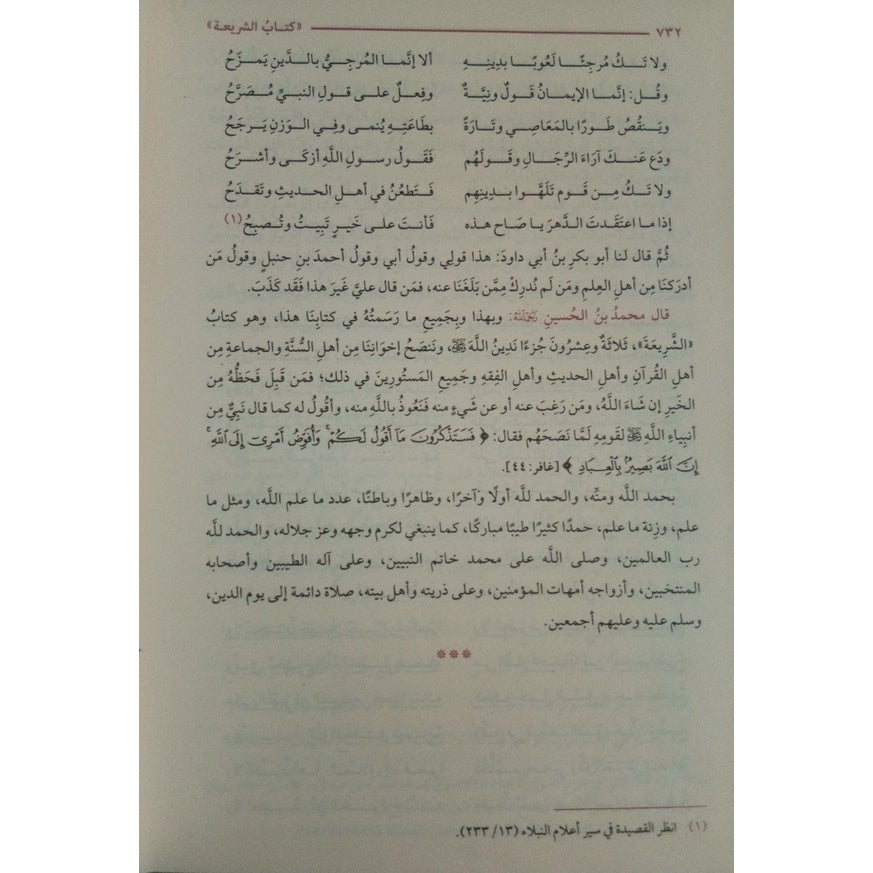 ٧٣٢ «كتابُ الشريعة»
ولا تَكُ مُرجِئًا لَعُوبًا بدِينِهِ ألا إنَّما المُرجِيُّ بالدَّينِ يَمزَحُ
وقُل: إنَّما الإيمانُ قَولٌ ونِيَّةٌ وفِعلٌ على قولِ النبيِّ مُصَرَّحُ
ويَنقُصُ طَورًا بالمَعَاصِي وتَارَةً بطَاعَتِهِ يُنمى وفِي الوَزنِ يَرجَحُ
ودَع عَنكَ آرَاءَ الرِّجَالِ وقَولَهُم فَقَولُ رسولِ اللَّهِ أزكَى وأشرَحُ
ولا تَكُ مِن قَوم تَلَهَّوا بدِينِهِم فَتَطعُنُ في أهلِ الحديثِ وتَقدَحُ
إذا ما اعتَقَدتَ الدَّهرَ يا صَاح هذه فَأنتَ على خَيرٍ تَبِيتُ وتُصبِحُ(١)
ثُمَّ قال لنا أبو بكرِ بنُ أبي داودَ: هذا قولِي وقولُ أبي وقولُ أحمدَ بنِ حنبلٍ وقولُ مَن
أدرَكنَا مِن أهلِ العِلمِ ومَن لَم نُدرِكْ مِمَّن بَلَغَنَا عنه، فمَن قال عليَّ غَيرَ هذا فَقَد كَذَبَ.
قال محمدُ بنُ الحُسينِ رَحِمَهُ اللَّهُ: وبهذا وبِجَمِيعِ ما رَسَمتُهُ في كتابِنَا هذا، وهو كتابُ
«الشَّرِيعَة»، ثَلاثَةٌ وعِشرُونَ جُزءًا نَدِينُ اللَّهَ ﷻ، ونَنصَحُ إخوَانِنَا مِن أهلِ السُّنَّةِ والجماعةِ مِن
أهلِ القُرآنِ وأهلِ الحديثِ وأهلِ الفِقهِ وجَمِيعِ المَستُورِينَ في ذلك؛ فمَن قَبِلَ فَحَظُّهُ مِن
الخَيرِ إن شَاءَ اللَّهُ، ومَن رَغِبَ عنه أو عن شَيءٍ منه فَنَعُوذُ باللَّهِ منه، وأقُولُ له كما قال نَبِيٌّ مِن
أنبِياءِ اللَّهِ ﷺ لقَومِهِ لَمَّا نَصَحَهُم فقال: ﴿ فَسَتَذْكُرُونَ مَآ أَقُولُ لَكُمْ ۚ وَأُفَوِّضُ أَمْرِىٓ إِلَى ٱللَّهِ ۚ
إِنَّ ٱللَّهَ بَصِيرٌۢ بِٱلْعِبَادِ ﴾ [غافر: ٤٤].
بحمد اللَّه ومنِّه، والحمد للَّه أولًا وآخرًا، وظاهرًا وباطنًا، عدد ما علم اللَّه، ومثل ما
علم، وزِنة ما علم، حمدًا كثيرًا طيبًا مباركًا، كما ينبغي لكرم وجهه وعز جلاله، والحمد للَّه
رب العالمين، وصلى اللَّه على محمد خاتم النبيين، وعلى آله الطيبين وأصحابه
المنتخبين، وأزواجه أمهات المؤمنين، وعلى ذريته وأهل بيته، صلاة دائمة إلى يوم الدين،
وسلم عليه وعليهم أجمعين.
(١) انظر القصيدة في سير أعلام النبلاء (١٣/ ٢٣٣).